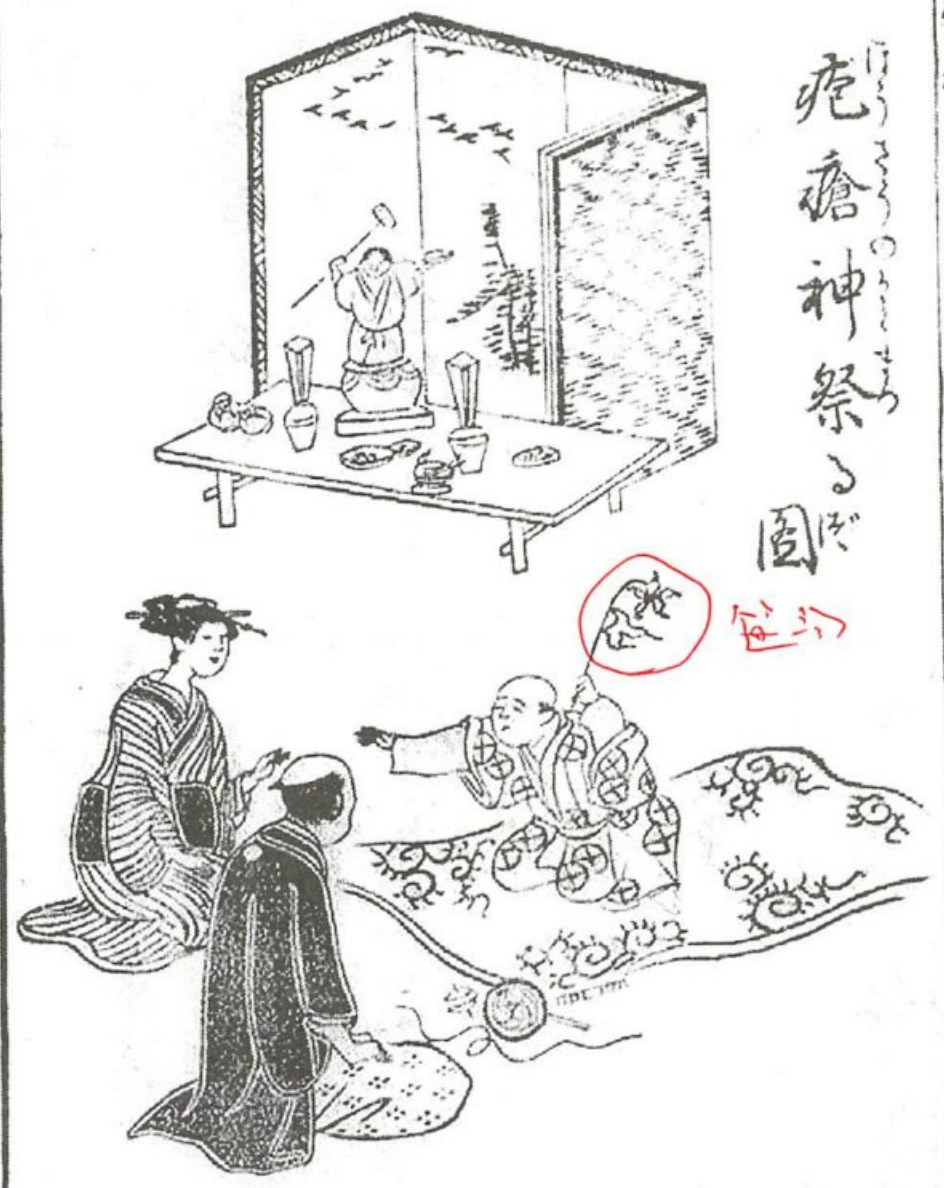 疱瘡神祭る
圖
ほうさうのかミまつ
づ